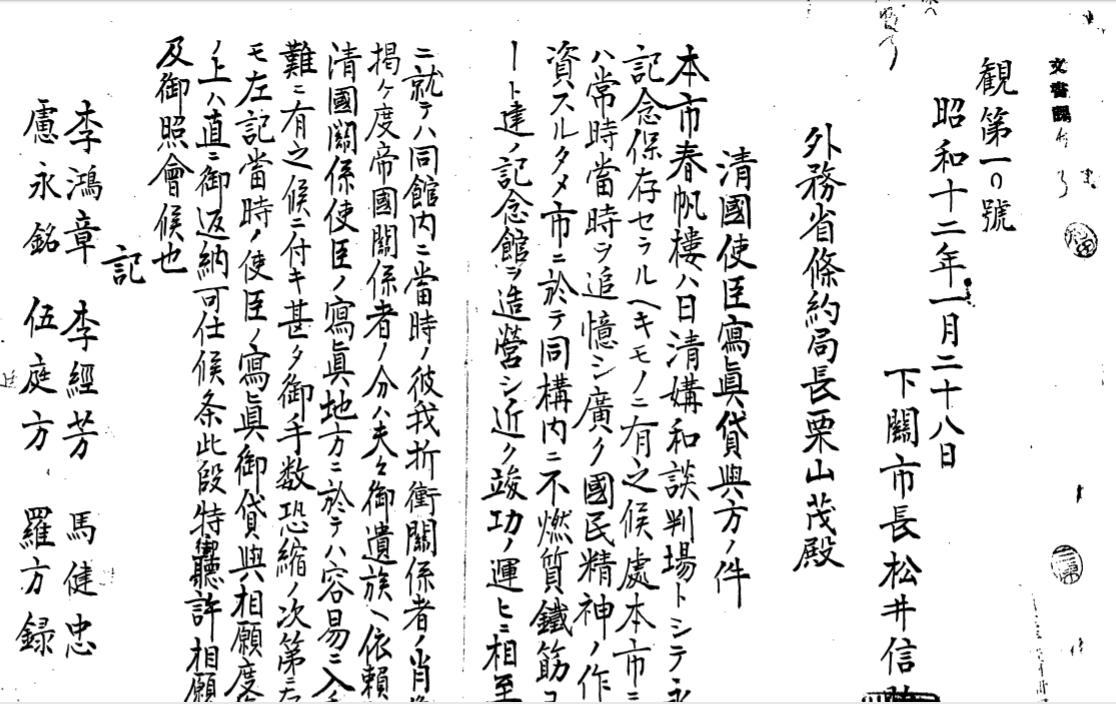 文書課
観第一〇號
昭和十二年一月二十八日
下關市長松井信
外務省條約局長栗山茂殿
清國使臣寫眞貸與方ノ件
本市春帆樓ハ日清媾和談判場トシテ永
記念保存セラルヘキモノニ有之候處本市ニ
ハ常時當時ヲ追憶シ廣ク國民精神ノ作
資スルタメ市ニ於テ同構内ニ不燃質鐵筋コ
ート建ノ記念館ヲ造營シ近ク竣功ノ運ヒニ相至
ニ就テハ同館内ニ當時ノ彼我折衝關係者ノ肖像
掲ケ度帝國關係者ノ分ハ夫々御遺族ヘ依賴
清國關係使臣ノ寫眞地方ニ於テハ容易ニ入手
難ニ有之候ニ付キ甚タ御手数恐縮ノ次第ニ
モ左記當時ノ使臣ノ寫眞御貸與相願度
ノ上ハ直ニ御返納可仕候条此段特御聽許相願
及御照會候也
記
李鴻章 李經芳 馬健忠
慮永銘 伍庭方、羅方録